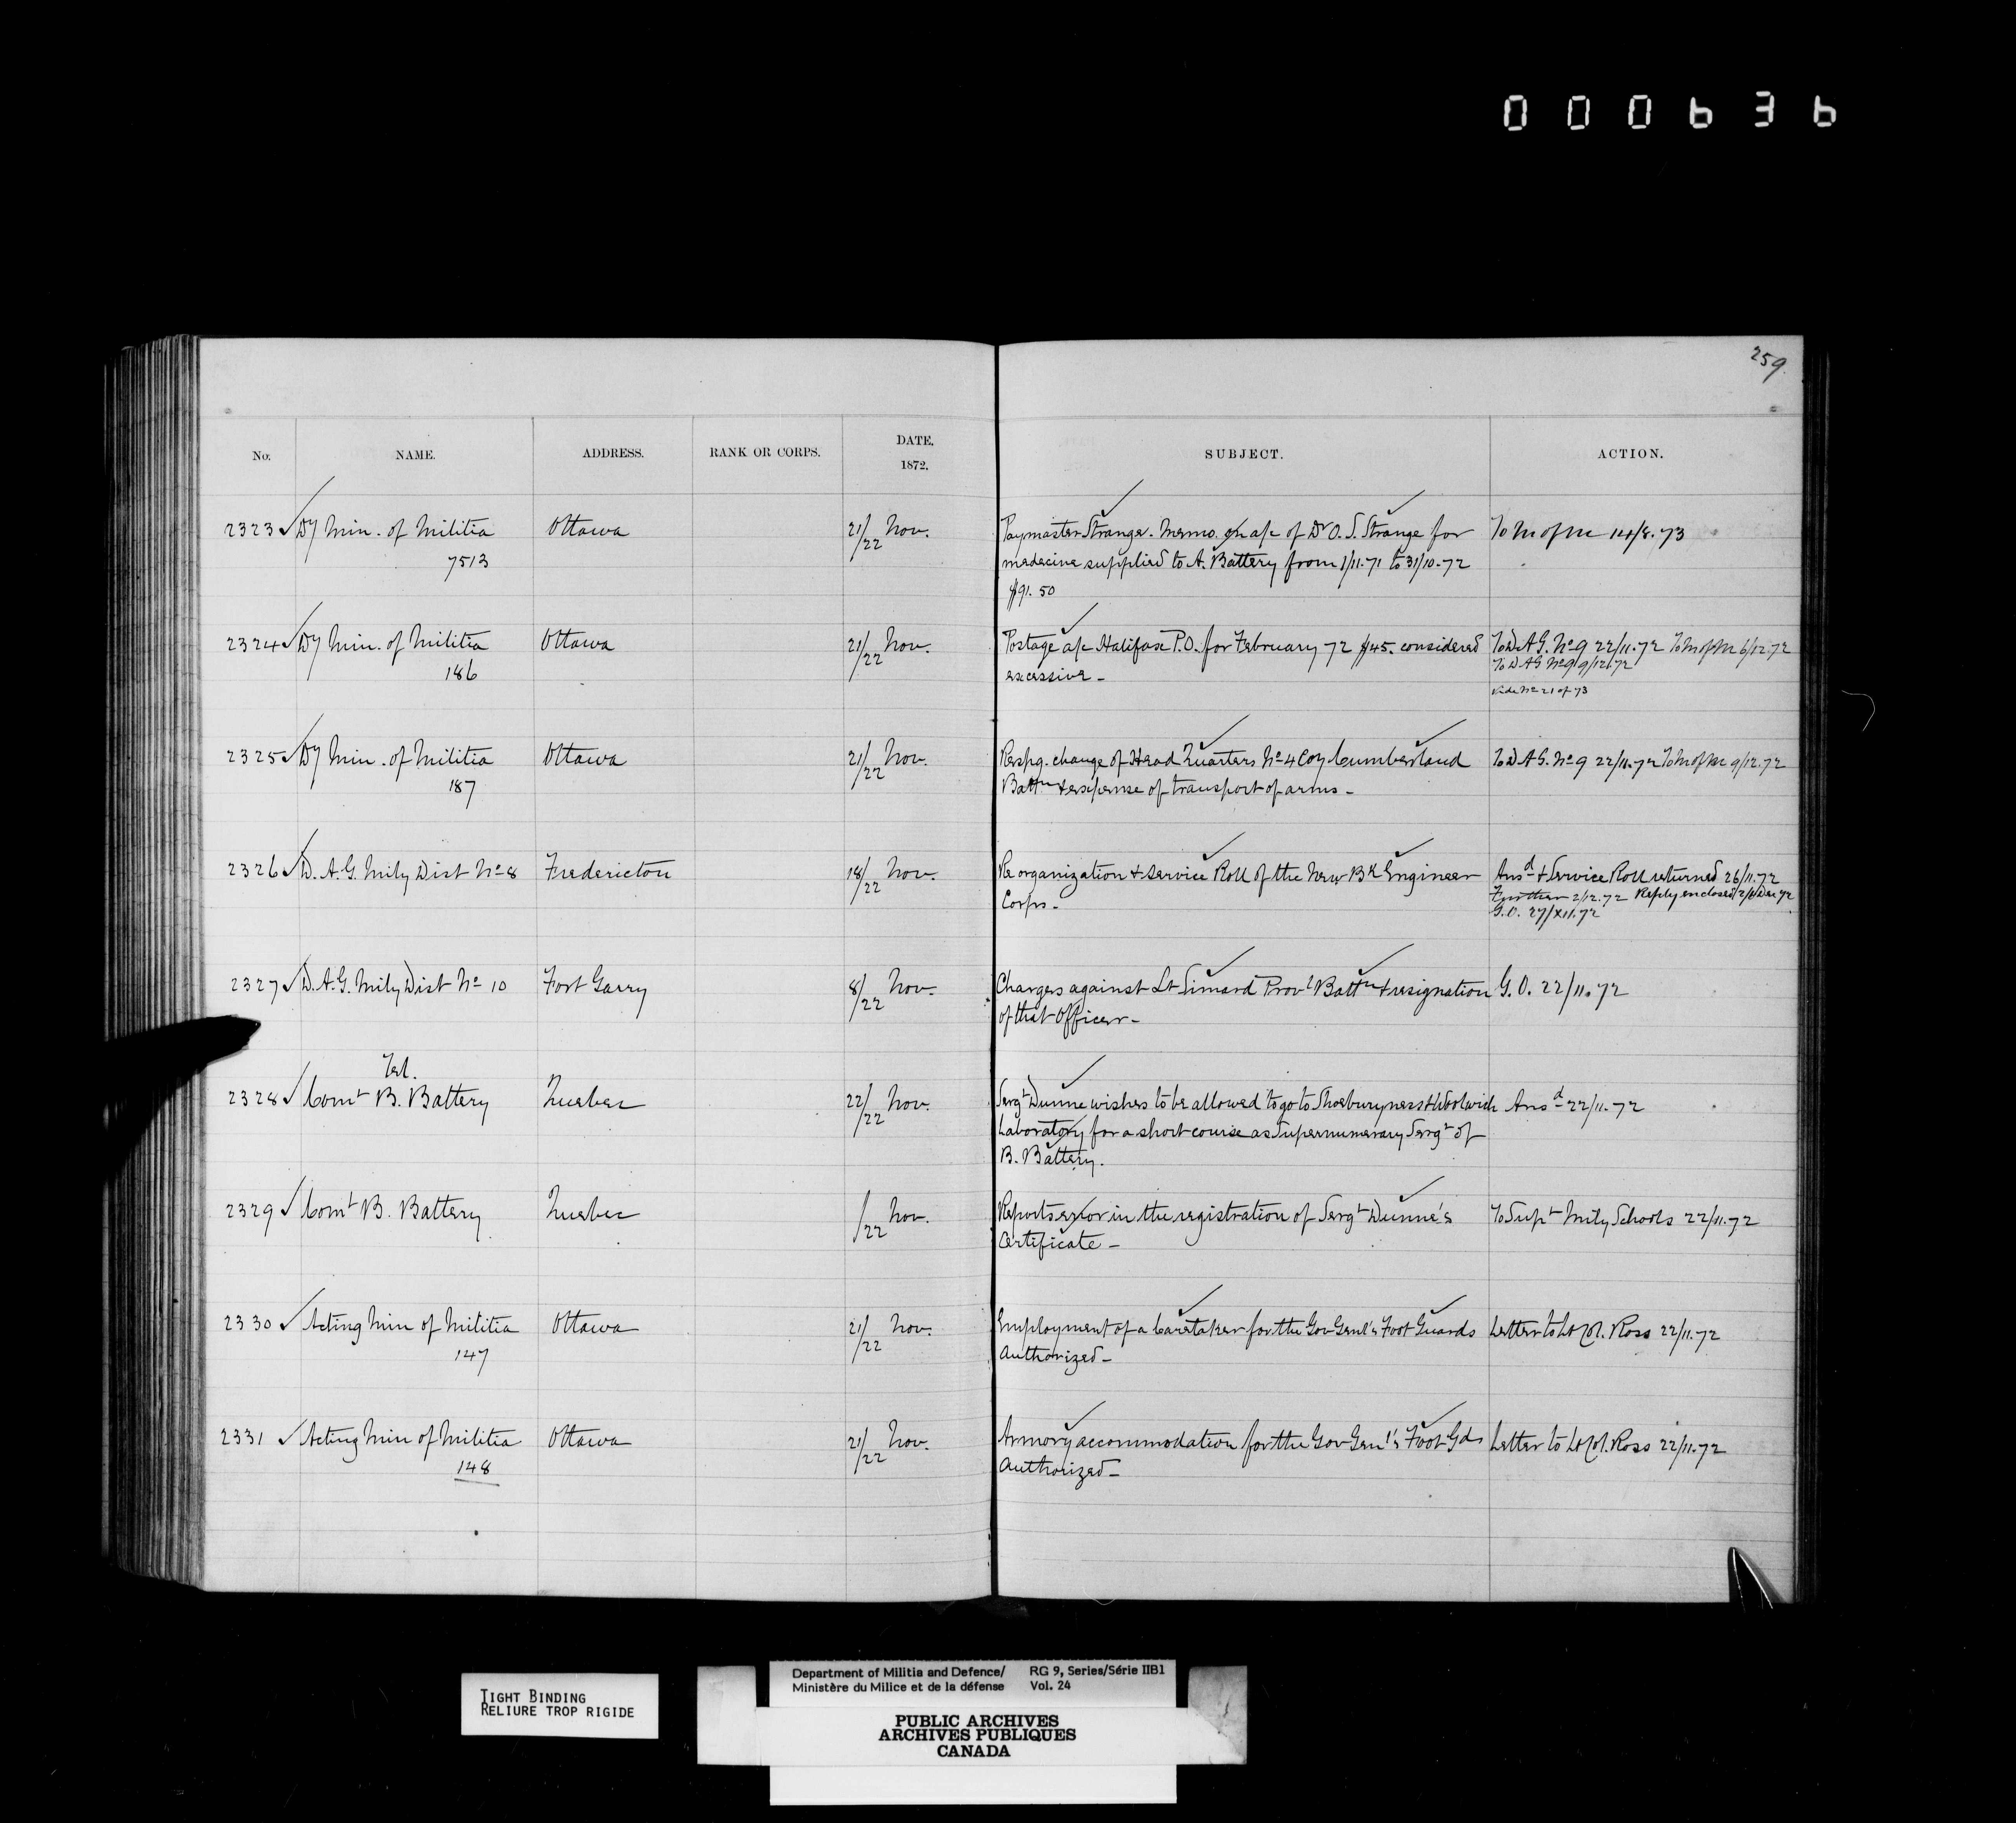 000636
259
No. NAME. ADDRESS. RANK OR CORPS. DATE. 1872. SUBJECT. ACTION.
2323 Dy Min. of Militia Ottawa 21/22 Nov. Paymaster Strange. Memo. on a/c of Dr O. S. Strange for To M of M 14/8.73
7513 medecine supplied to A. Battery from 1/11.71 to 31/10.72
$91.50
2324 Dy Min. of Militia Ottawa 21/22 Nov. Postage a/c Halifax P.O. for February 72 $45. considered To D.A.G. No 9 22/11.72 To M of M 6/12.72
186 excessive - To D.A.G. No 9 9/12.72
Vide No 21 of 73
2325 Dy Min. of Militia Ottawa 21/22 Nov. Respg. change of Head Quarters No 4 Coy Cumberland To D.A.G. No 9 22/11.72 To M of M 9/12.72
187 Battn & expense of transport of arms -
2326 D. A. G. Mily Dist No 8 Fredericton 18/22 Nov. Re organization & Service Roll of the New Bk Engineer Ansd & Service Roll returned 26/11.72
Corps - Further 2/12.72 Reply enclosed Dec 72
G.O. 27/XII.72
2327 D. A. G. Mily Dist No 10 Fort Garry 8/22 Nov. Charges against Lt Simard Provl Battn & resignation G. O. 22/11.72
of that Officer -
Tel.
2328 Comt B. Battery Quebec 22/22 Nov. Sergt Dunne wishes to be allowed to go to Shoeburyness & Woolwich Ansd 22/11.72
Laboratory for a short course as Supernumerary Sergt of
B. Battery.
2329 Comt B. Battery Quebec /22 Nov. Reports error in the registration of Sergt Dunne's To Supt Mily Schools 22/11.72
Certificate -
2330 Acting Min of Militia Ottawa 21/22 Nov. Employment of a Caretaker for the Gov Genl's Foot Guards Letter to Lt Col. Ross 22/11.72
147 Authorized -
2331 Acting Min of Militia Ottawa 21/22 Nov. Armory accommodation for the Gov Genl's Foot Gds Letter to Lt Col. Ross 22/11.72
148 Authorized -
TIGHT BINDING
RELIURE TROP RIGIDE
Department of Militia and Defence/ RG 9, Series/Série IIB1
Ministère du Milice et de la défense Vol. 24
PUBLIC ARCHIVES
ARCHIVES PUBLIQUES
CANADA